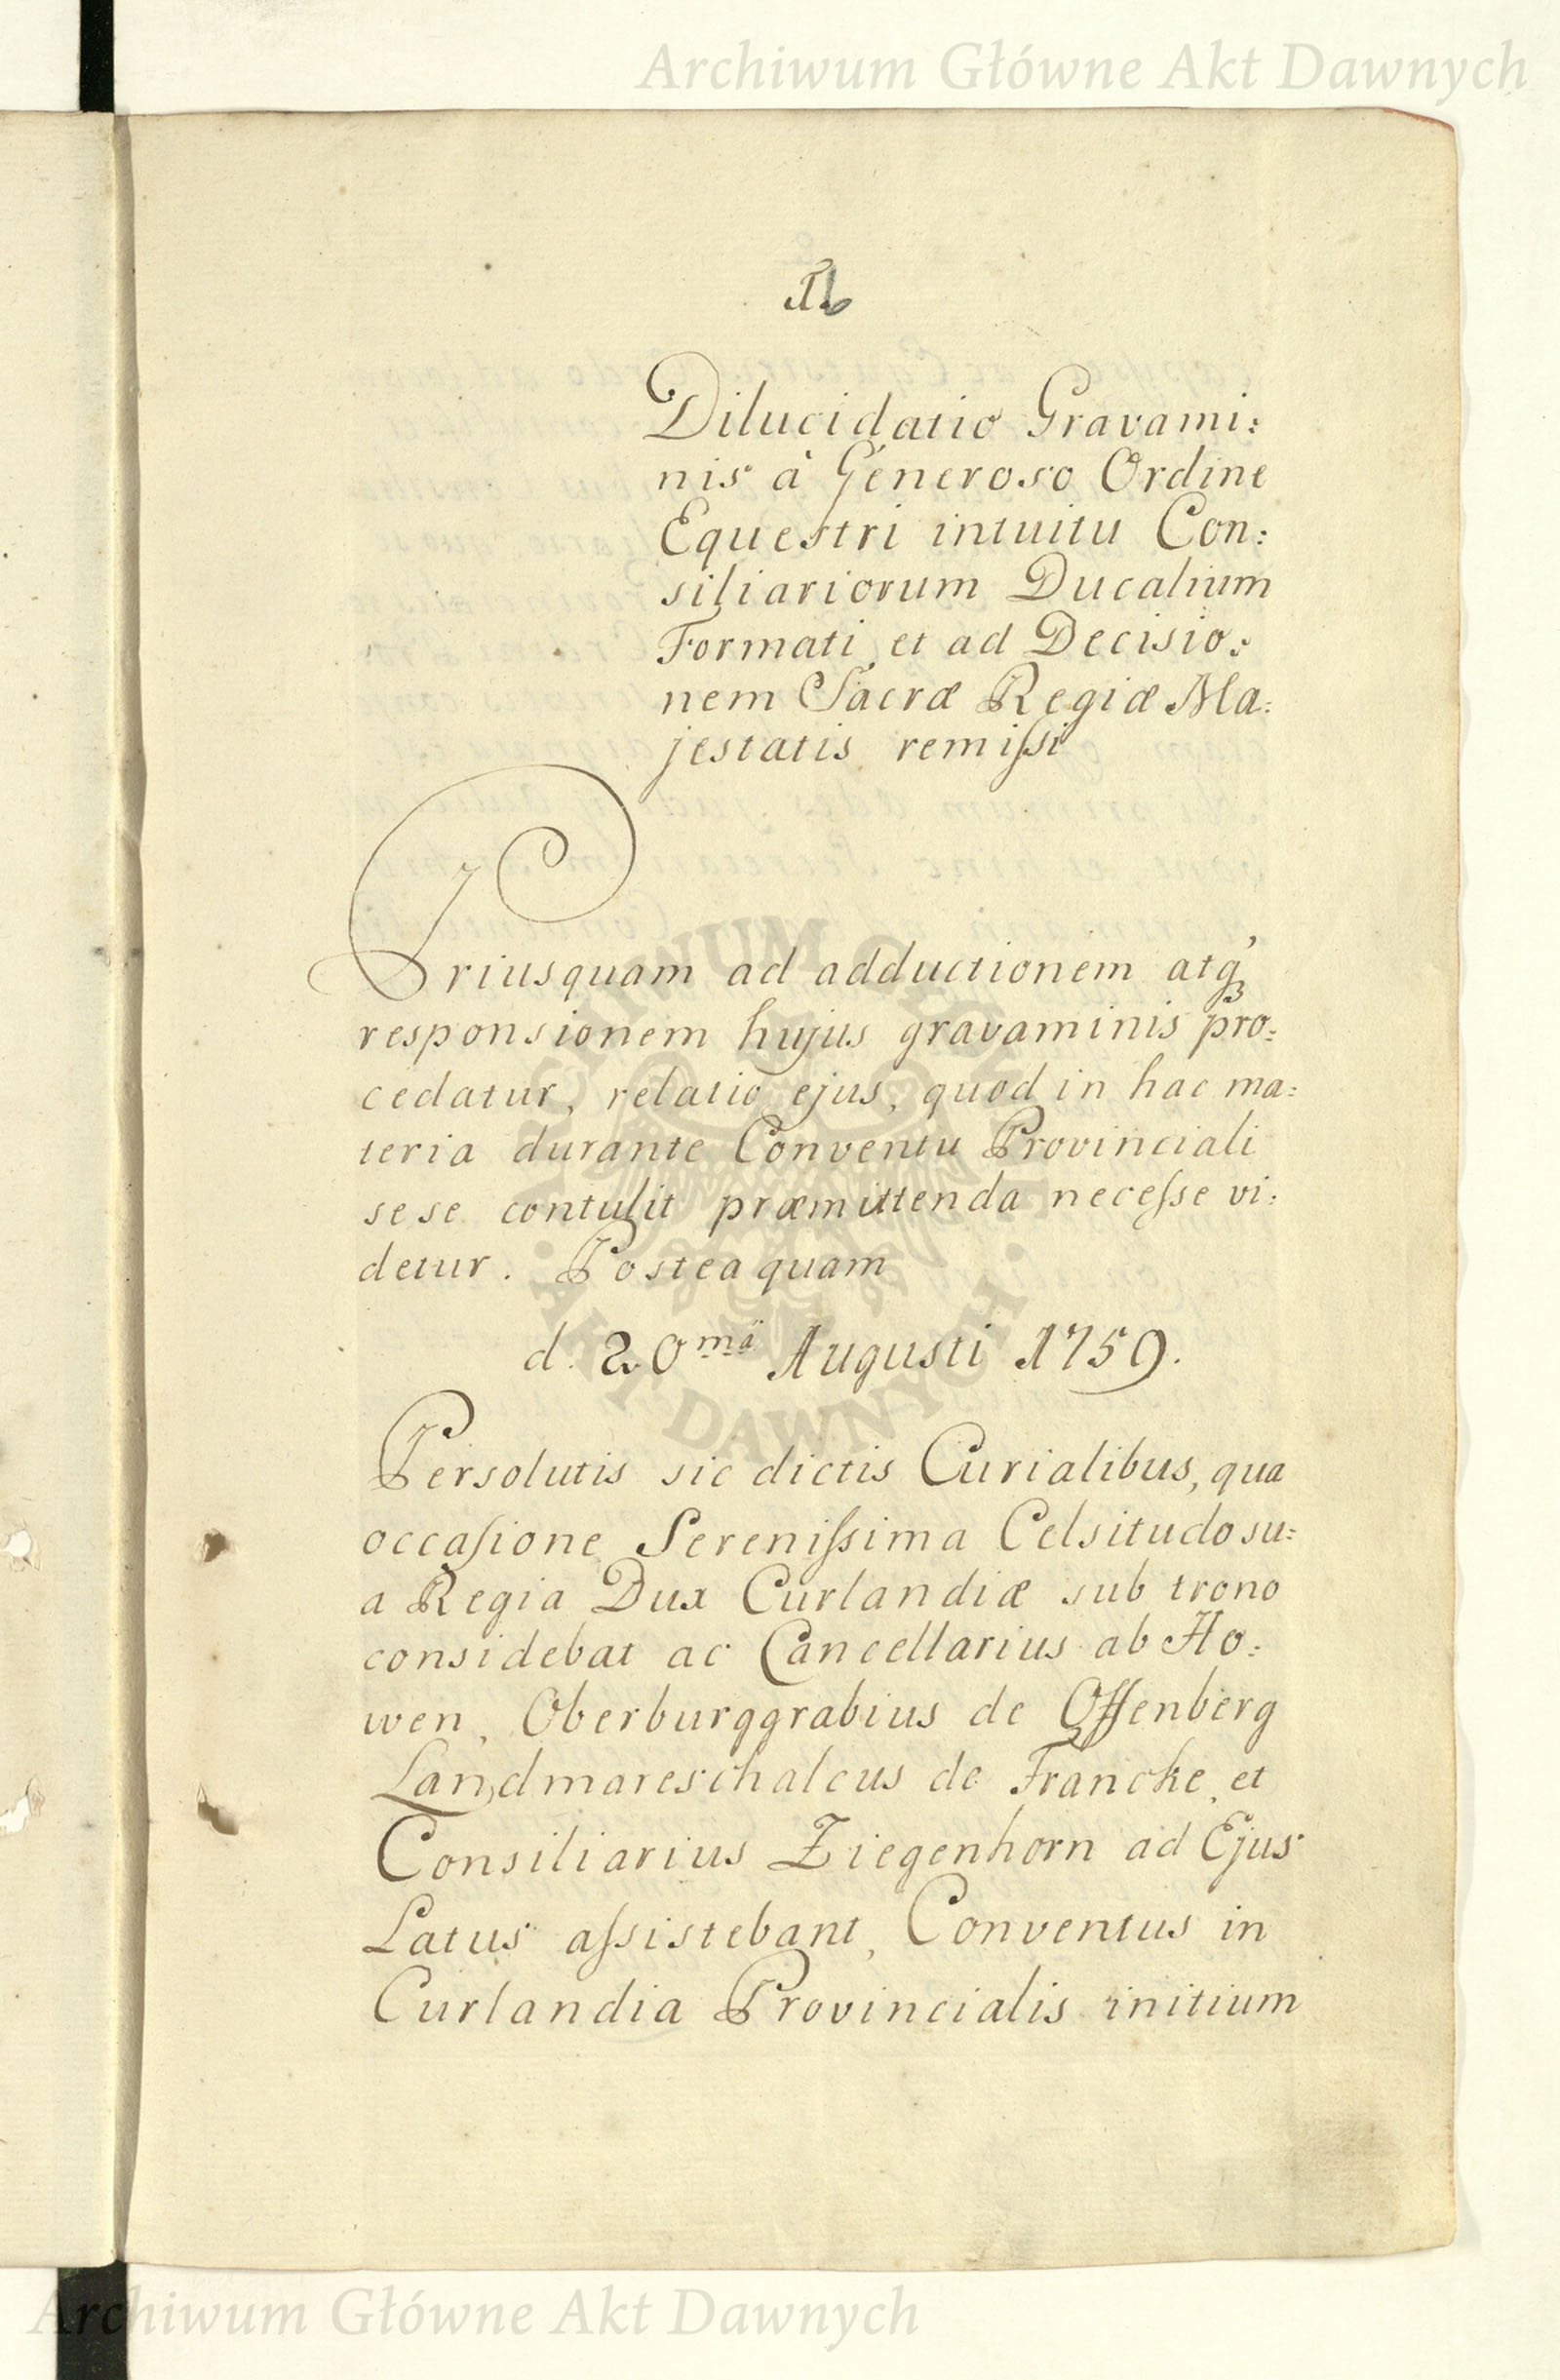 Archiwum Główne Akt Dawnych
Dilucidatio Gravami:
nis à Generoso Ordine
Equestri intuitu Con:
siliariorum Ducalium
Formati et ad Decisio:
nem Sacræ Regiæ Ma:
jestatis remiſsi
Priusquam ad adductionem atq́ꝫ
responsionem hujus gravaminis pro:
cedatur, relatio ejus, quod in hac ma:
teria durante Conventu Provinciali
sese contulit præmittenda neceſse vi:
detur. Posteaquam
d. 20mâ Augusti 1759.
Persolutis sic dictis Curialibus, qua
occaſione Sereniſsima Celsitudo su:
a Regia Dux Curlandiæ sub trono
considebat ac Cancellarius ab Ho:
wen, Oberburggrabius de Offenberg
Landmareschalcus de Francke, et
Consiliarius Ziegenhorn ad Ejus
Latus aſsistebant, Conventus in
Curlandia Provincialis initium
ARCHIWUM GŁÓWNE
AKT DAWNYCH
Archiwum Główne Akt Dawnych